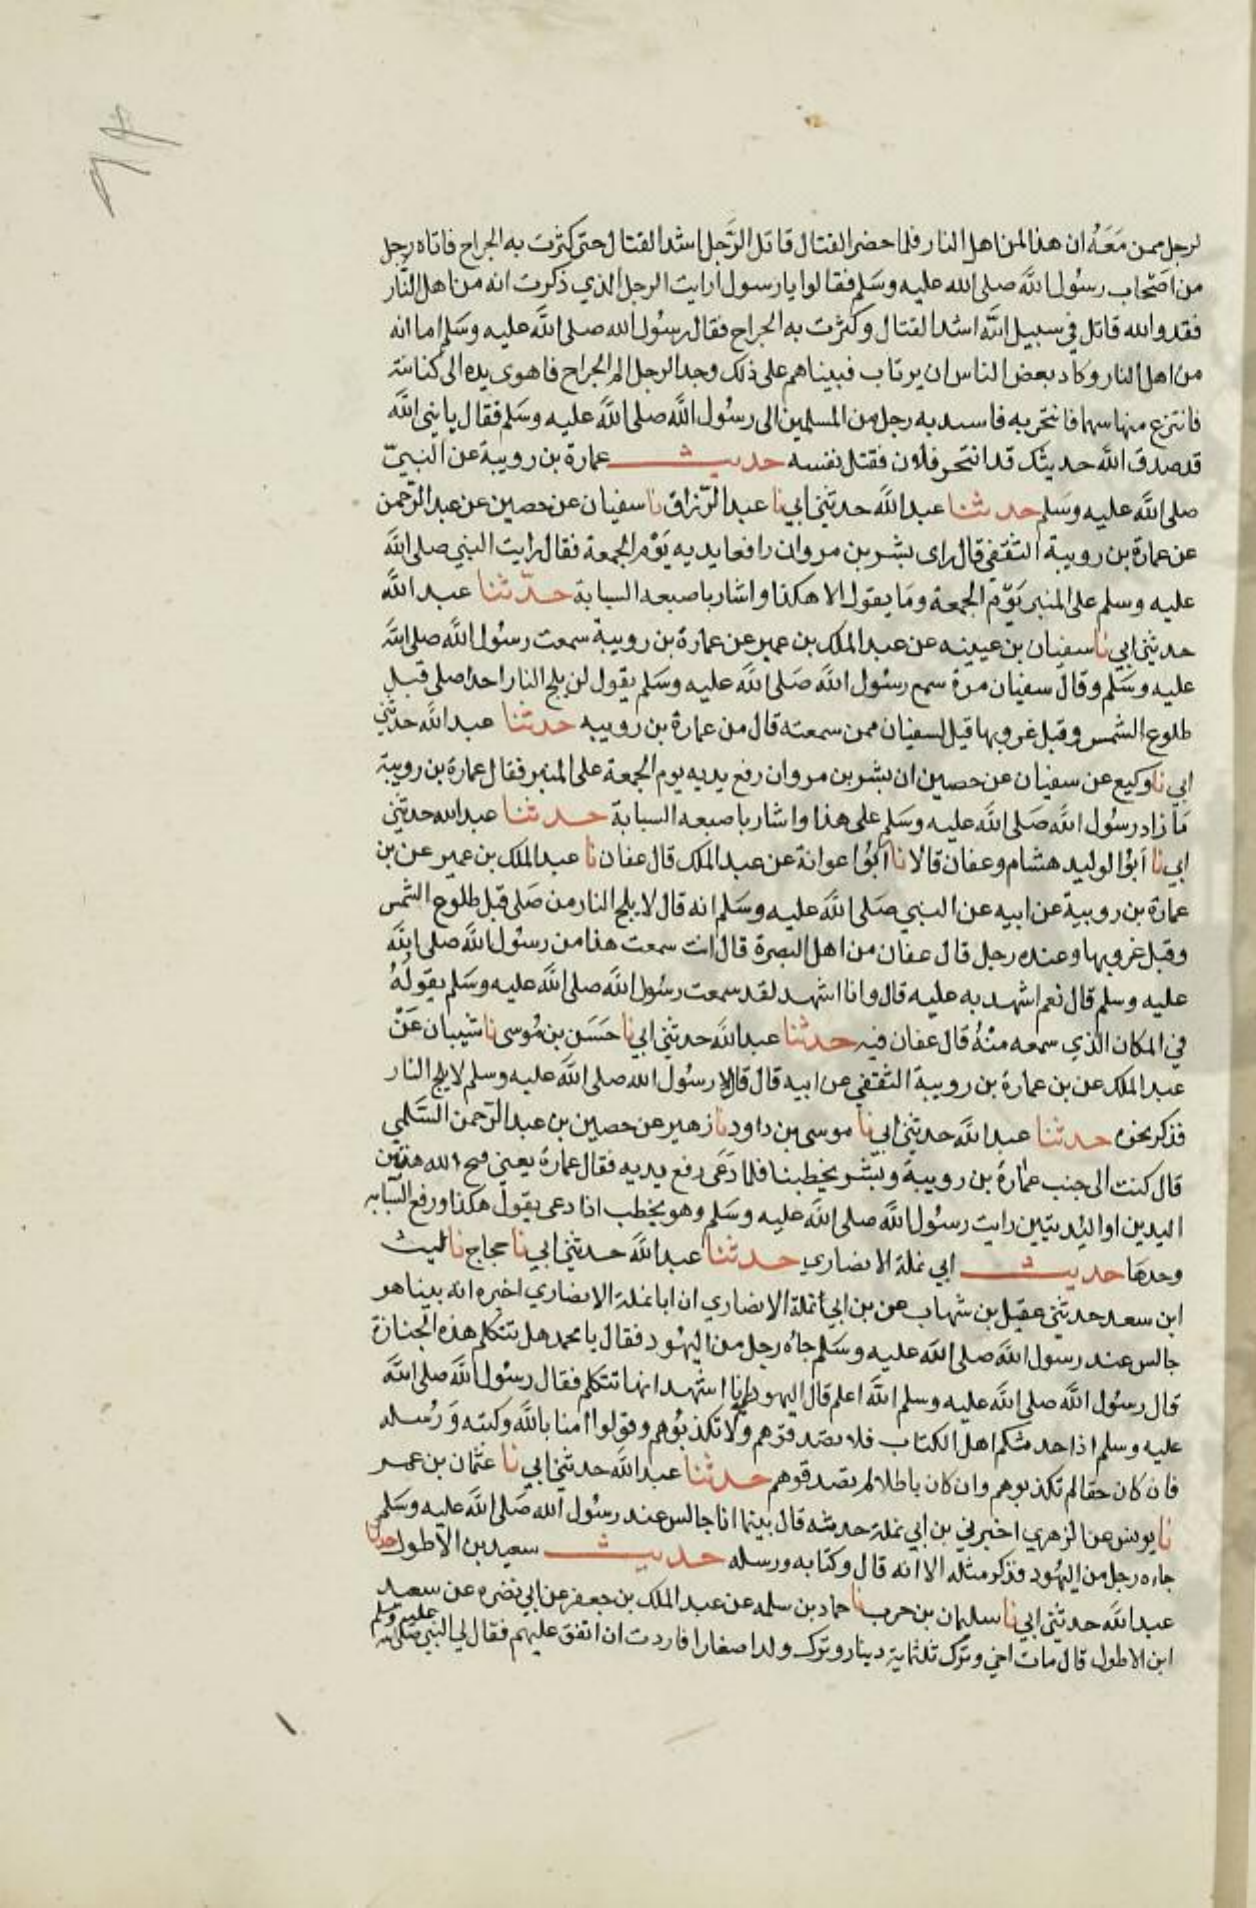 لرجل ممن مَعَهُ ان هذا لمن اهل النار فلما حضر القتال قاتل الرَّجل اشد القتال حتى كثرت به الجراح فاتاه رجل
من اصْحَاب رسُول اللَّه صلى الله عليه وسَلم فقالوا يا رسول ارايت الرجل الذي ذكرت انه من اهل النَّار
فقد والله قاتل في سبيل اللَّه اشد القتال وكثرت به الجراح فقال رسُول الله صلى اللَّه عليه وسَلم اما انه
من اهل النار وكاد بعض الناس ان يرتاب فبيناهم على ذلك وجد الرجل الم الجراح فاهوى يده الى كنانته
فانتزع منها سهما فانتحر به فاسند به رجل من المسلمين الى رسُول اللَّه صلى اللَّه عليه وسَلم فقال يا نبي اللَّه
قد صدق اللَّه حديثك قد انتحر فلان فقتل نفسه حديث عمارة بن رويبة عن النبيّ
صلى اللَّه عليه وسَلم حدثنا عبد اللَّه حدثني ابي نا عبد الرَّزاق نا سفيان عن حصين عن عبد الرَّحمن
عن عمارة بن رويبة الثقفي قال راى بشر بن مروان رافعا يديه يَوْم الجمعة فقال رايت النبي صلى اللَّه
عليه وسلم على المنبر يَوْم الجمعة ومَا يقول الا هكذا واشار باصبعه السبابة حدّثنا عبد اللَّه
حدثني ابي نا سفيان بن عيينه عن عبد الملك بن عمير عن عمارة بن رويبة سمعت رسُول اللَّه صلى اللَّه
عليه وسَلم وقال سفيان مرة سمع رسُول اللَّه صَلى اللَّه عليه وسَلم يقول لن يلج النار احد صلى قبل
طلوع الشمس وقبل غروبها قيل لسفيان ممن سمعته قال من عمارة بن رويبه حدثنا عبد اللَّه حدثني
ابي نا وكيع عن سفيان عن حصين ان بشر بن مروان رفع يديه يوم الجمعة على المنبر فقال عمارة بن رويبة
مَا زاد رسُول اللَّه صَلى اللَّه عليه وسَلم على هذا واشار باصبعه السبابة حدثنا عبد الله حدثني
ابي نا أبوُ الوليد هشام وعفان قالا نا أبوُا عوانة عن عبد الملك قال عفان نا عبد الملك بن عمير عن بن
عمارة بن رويبة عن ابيه عن النبي صَلى اللَّه عليه وسَلم انه قال لا يلج النار من صَلى قبل طلوع الشمس
وقبل غروبها وعنده رجل قال عفان من اهل البصرة قال انت سمعت هذا من رسُول اللَّه صلى اللَّه
عليه وسلم قال نعم اشهد به عليه قال وانا اشهد لقد سمعت رسُول اللَّه صلى اللَّه عليه وسَلم يقولهُ
في المكان الذي سمعه منْهُ قال عفان فيه حدثنا عبد اللَّه حدثني ابي نا حَسَن بن مُوسى نا شيبان عَنْ
عبد الملك عن بن عمارة بن رويبة الثقفي عن ابيه قال قال رسُول الله صلى اللَّه عليه وسلم لا يلج النار
فذكر نحوه حدثنا عبد اللَّه حدثني ابي نا موسى بن داود نا زهير عن حصين بن عبد الرَّحمن السَّلمي
قال كنت الى جنب عمارة بن رويبة وبشر يخطبنا فلما دَعَى رفع يديه فقال عمارة يعني قبح الله هذين
اليدين او اليُديتين رايت رسُول اللَّه صلى اللَّه عليه وسَلم وهو يخطب اذا دعى يقول هكذا ورفع السبابه
وحدهَا حديث ابي نملة الانصاري حدثنا عبد اللَّه حدثني ابي نا حجاج نا ليث
ابن سعد حدثني عقيل بن شهاب عن بن ابي نملة الانصاري ان ابا نملة الانصاري اخبره انه بينا هو
جالس عند رسول اللَّه صلى اللَّه عليه وسَلم جاه رجل من اليهُود فقال يا محمد هل تتكلم هذه الجنازة
قال رسُول اللَّه صلى اللَّه عليه وسلم اللَّه اعلم قال اليهودي انا اشهد انها تتكلم فقال رسُول اللَّه صلى اللَّه
عليه وسلم اذا حدثكم اهل الكتاب فلا تصدقوهم ولا تكذبُوهم وقولوا امنا باللَّه وكتبه وَرُسله
فان كان حقا لم تكذبوهم وان كان باطلا لم تصدقوهم حدثنا عبد اللَّه حدثني ابي نا عثمان بن عمر
نا يونس عن الزهري اخبرني بن ابي نملة حدثه قال بينما انا جالس عند رسُول الله صَلى اللَّه عليه وسَلم
جاءه رجل من اليهُود فذكر مثله الا انه قال وكتابه ورسله حديث سعيد بن الاطول حدثنا
عبد اللَّه حدثني ابي نا سليمان بن حرب نا حماد بن سلمه عن عبد الملك بن جعفر عن ابي نضره عن سعيد
ابن الاطول قال مات اخي وترك ثلثماية دينار وترك ولدا صغارا فاردت ان انفق عليهم فقال لي النبي صلى الله عليه وسلم